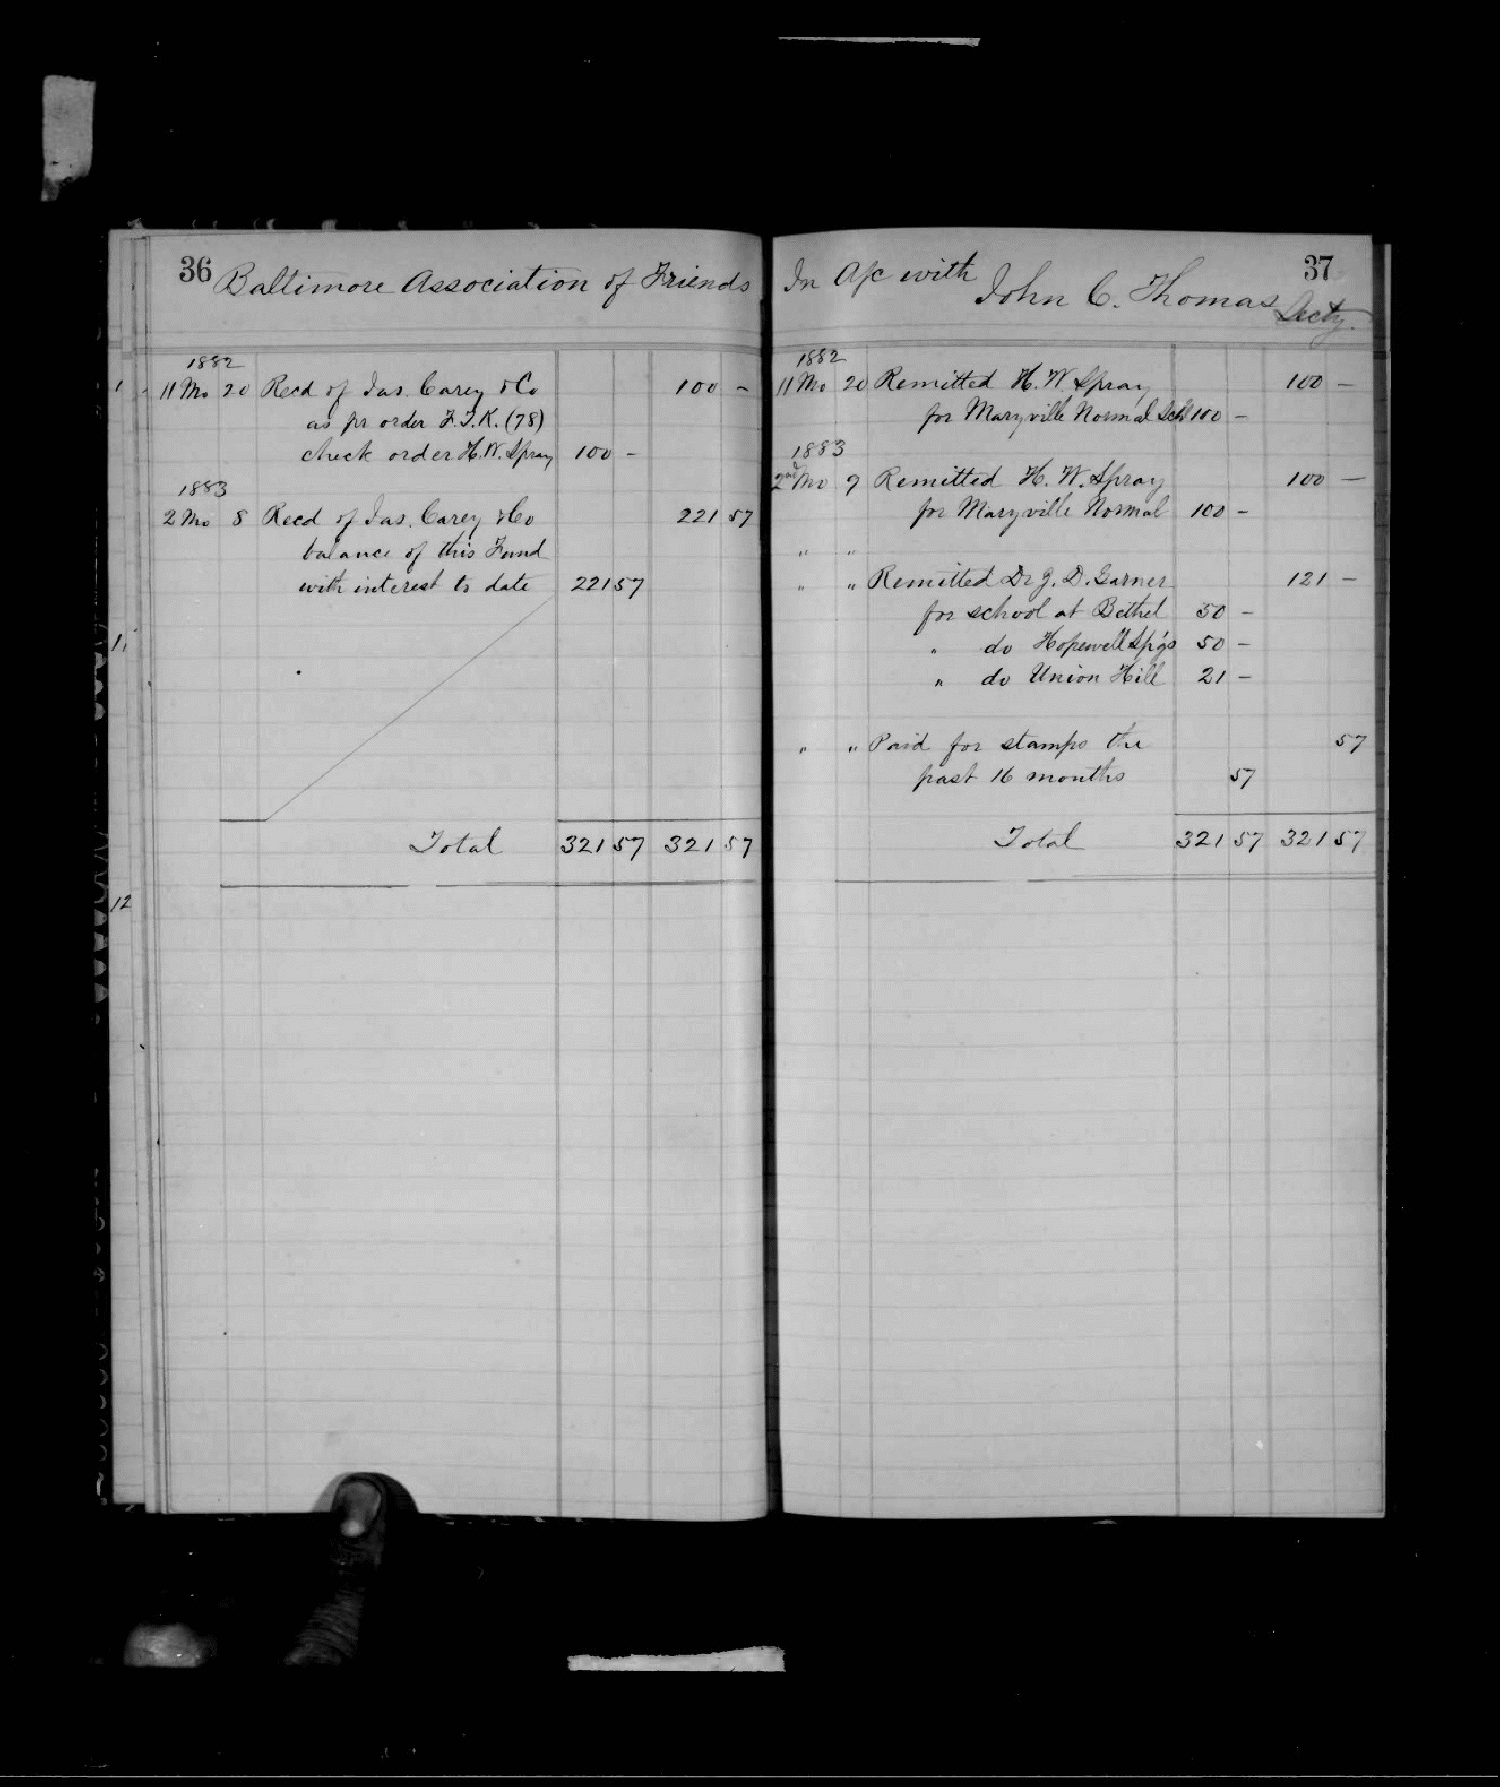 36 Baltimore Association of Friends
1882
11 Mo 20 Recd of Jas. Carey & Co 100 -
as pr order F.T.K. (78)
check order H.W. Spray 100 -
1883
2 Mo 8 Recd of Jas. Carey & Co 221 57
balance of this Fund
with interest to date 221 57
Total 321 57 321 57
1
11
12
In A/c with John C. Thomas Secty. 37
1882
11 Mo 20 Remitted H. W Spray 100 -
for Maryville Normal Sch 100 -
1883
2nd Mo 9 Remitted H. W. Spray 100 -
for Maryville Normal 100 -
" "
" " Remitted Dr J. D. Garner 121 -
for school at Bethel 50 -
" do Hopewell Sp'gs 50 -
" do Union Hill 21 -
" " Paid for stamps the 57
past 16 months 57
Total 321 57 321 57